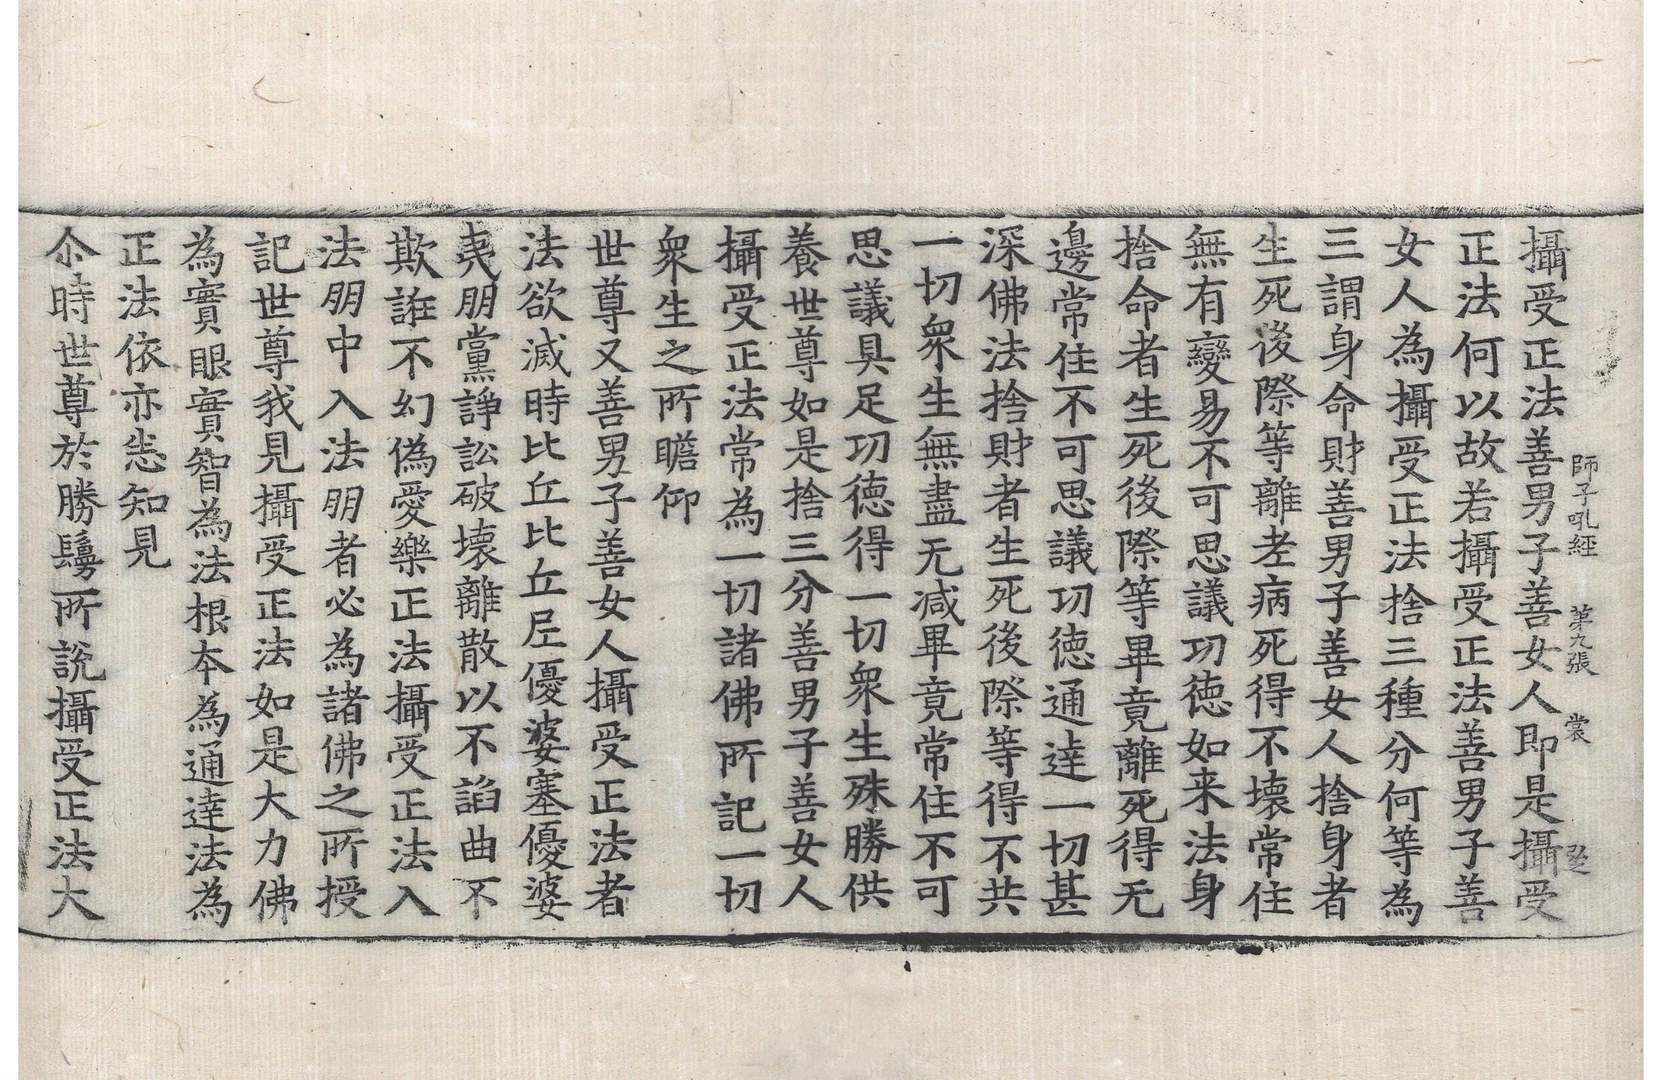 師子吼經　第九張　裳
攝受正法善男子善女人即是攝受
正法何以故若攝受正法善男子善
女人為攝受正法捨三種分何等為
三謂身命財善男子善女人捨身者
生死後際等離老病死得不壞常住
無有變易不可思議功德如来法身
捨命者生死後際等畢竟離死得无
邊常住不可思議功德通達一切甚
深佛法捨財者生死後際等得不共
一切衆生無盡无减畢竟常住不可
思議具足功德得一切衆生殊勝供
養世尊如是捨三分善男子善女人
攝受正法常為一切諸佛所記一切
衆生之所瞻仰
世尊又善男子善女人攝受正法者
法欲滅時比丘比丘尼優婆塞優婆
夷朋黨諍訟破壞離散以不諂曲不
欺誑不幻偽愛樂正法攝受正法入
法朋中入法朋者必為諸佛之所授
記世尊我見攝受正法如是大力佛
為實眼實智為法根本為通達法為
正法依亦悉知見
尒時世尊於勝鬘所說攝受正法大